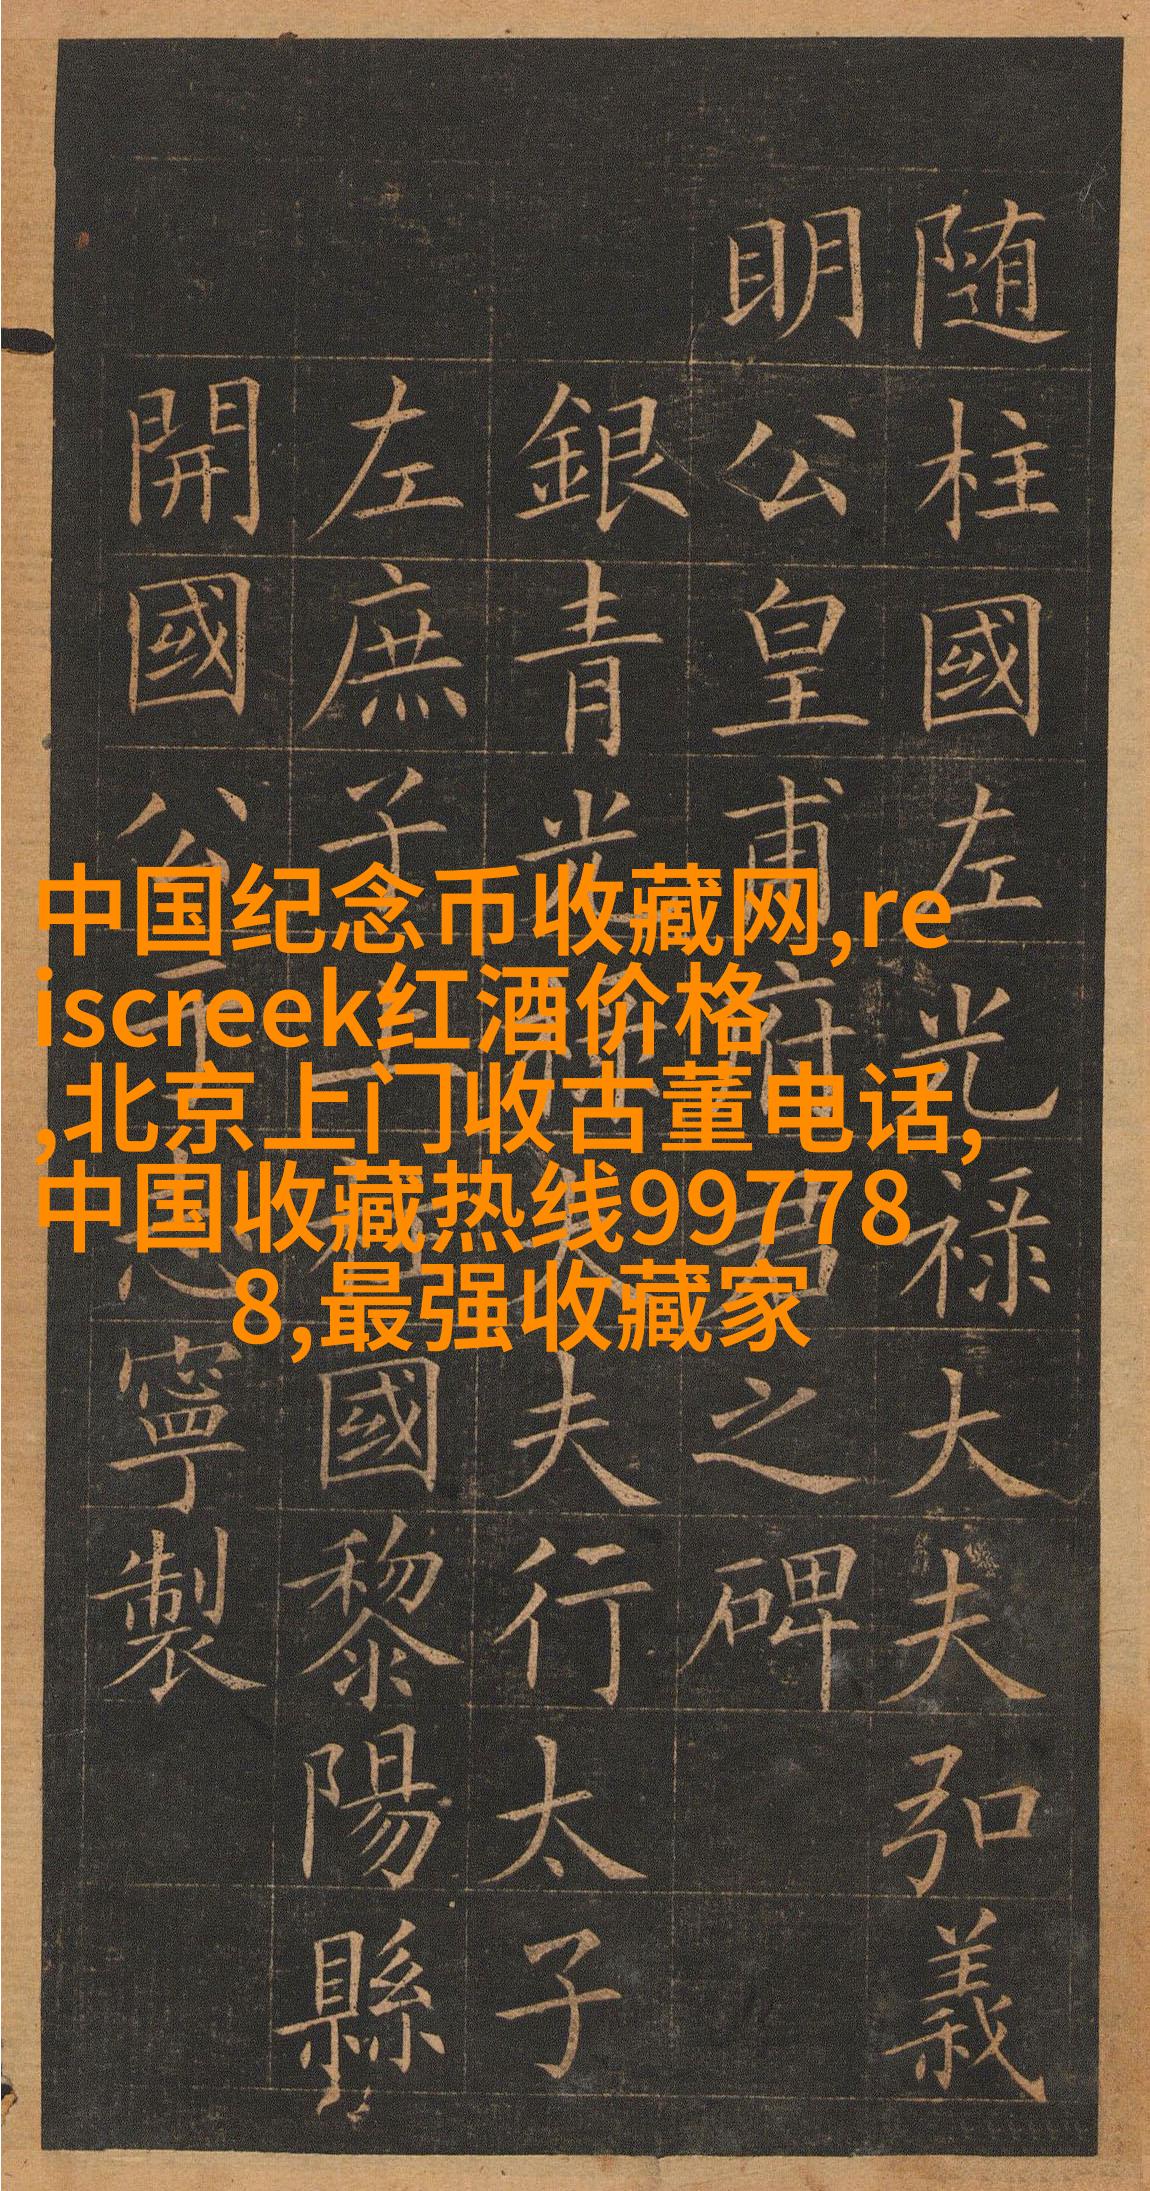 随柱國左光禄大夫弘義
明公皇甫府君之碑
銀青光禄大夫行太子
左庶子上柱國黎陽縣
開國公于志寧製
中国纪念币收藏网,re
iscreek红酒价格
,北京上门收古董电话,
中国收藏热线99778
8,最强收藏家